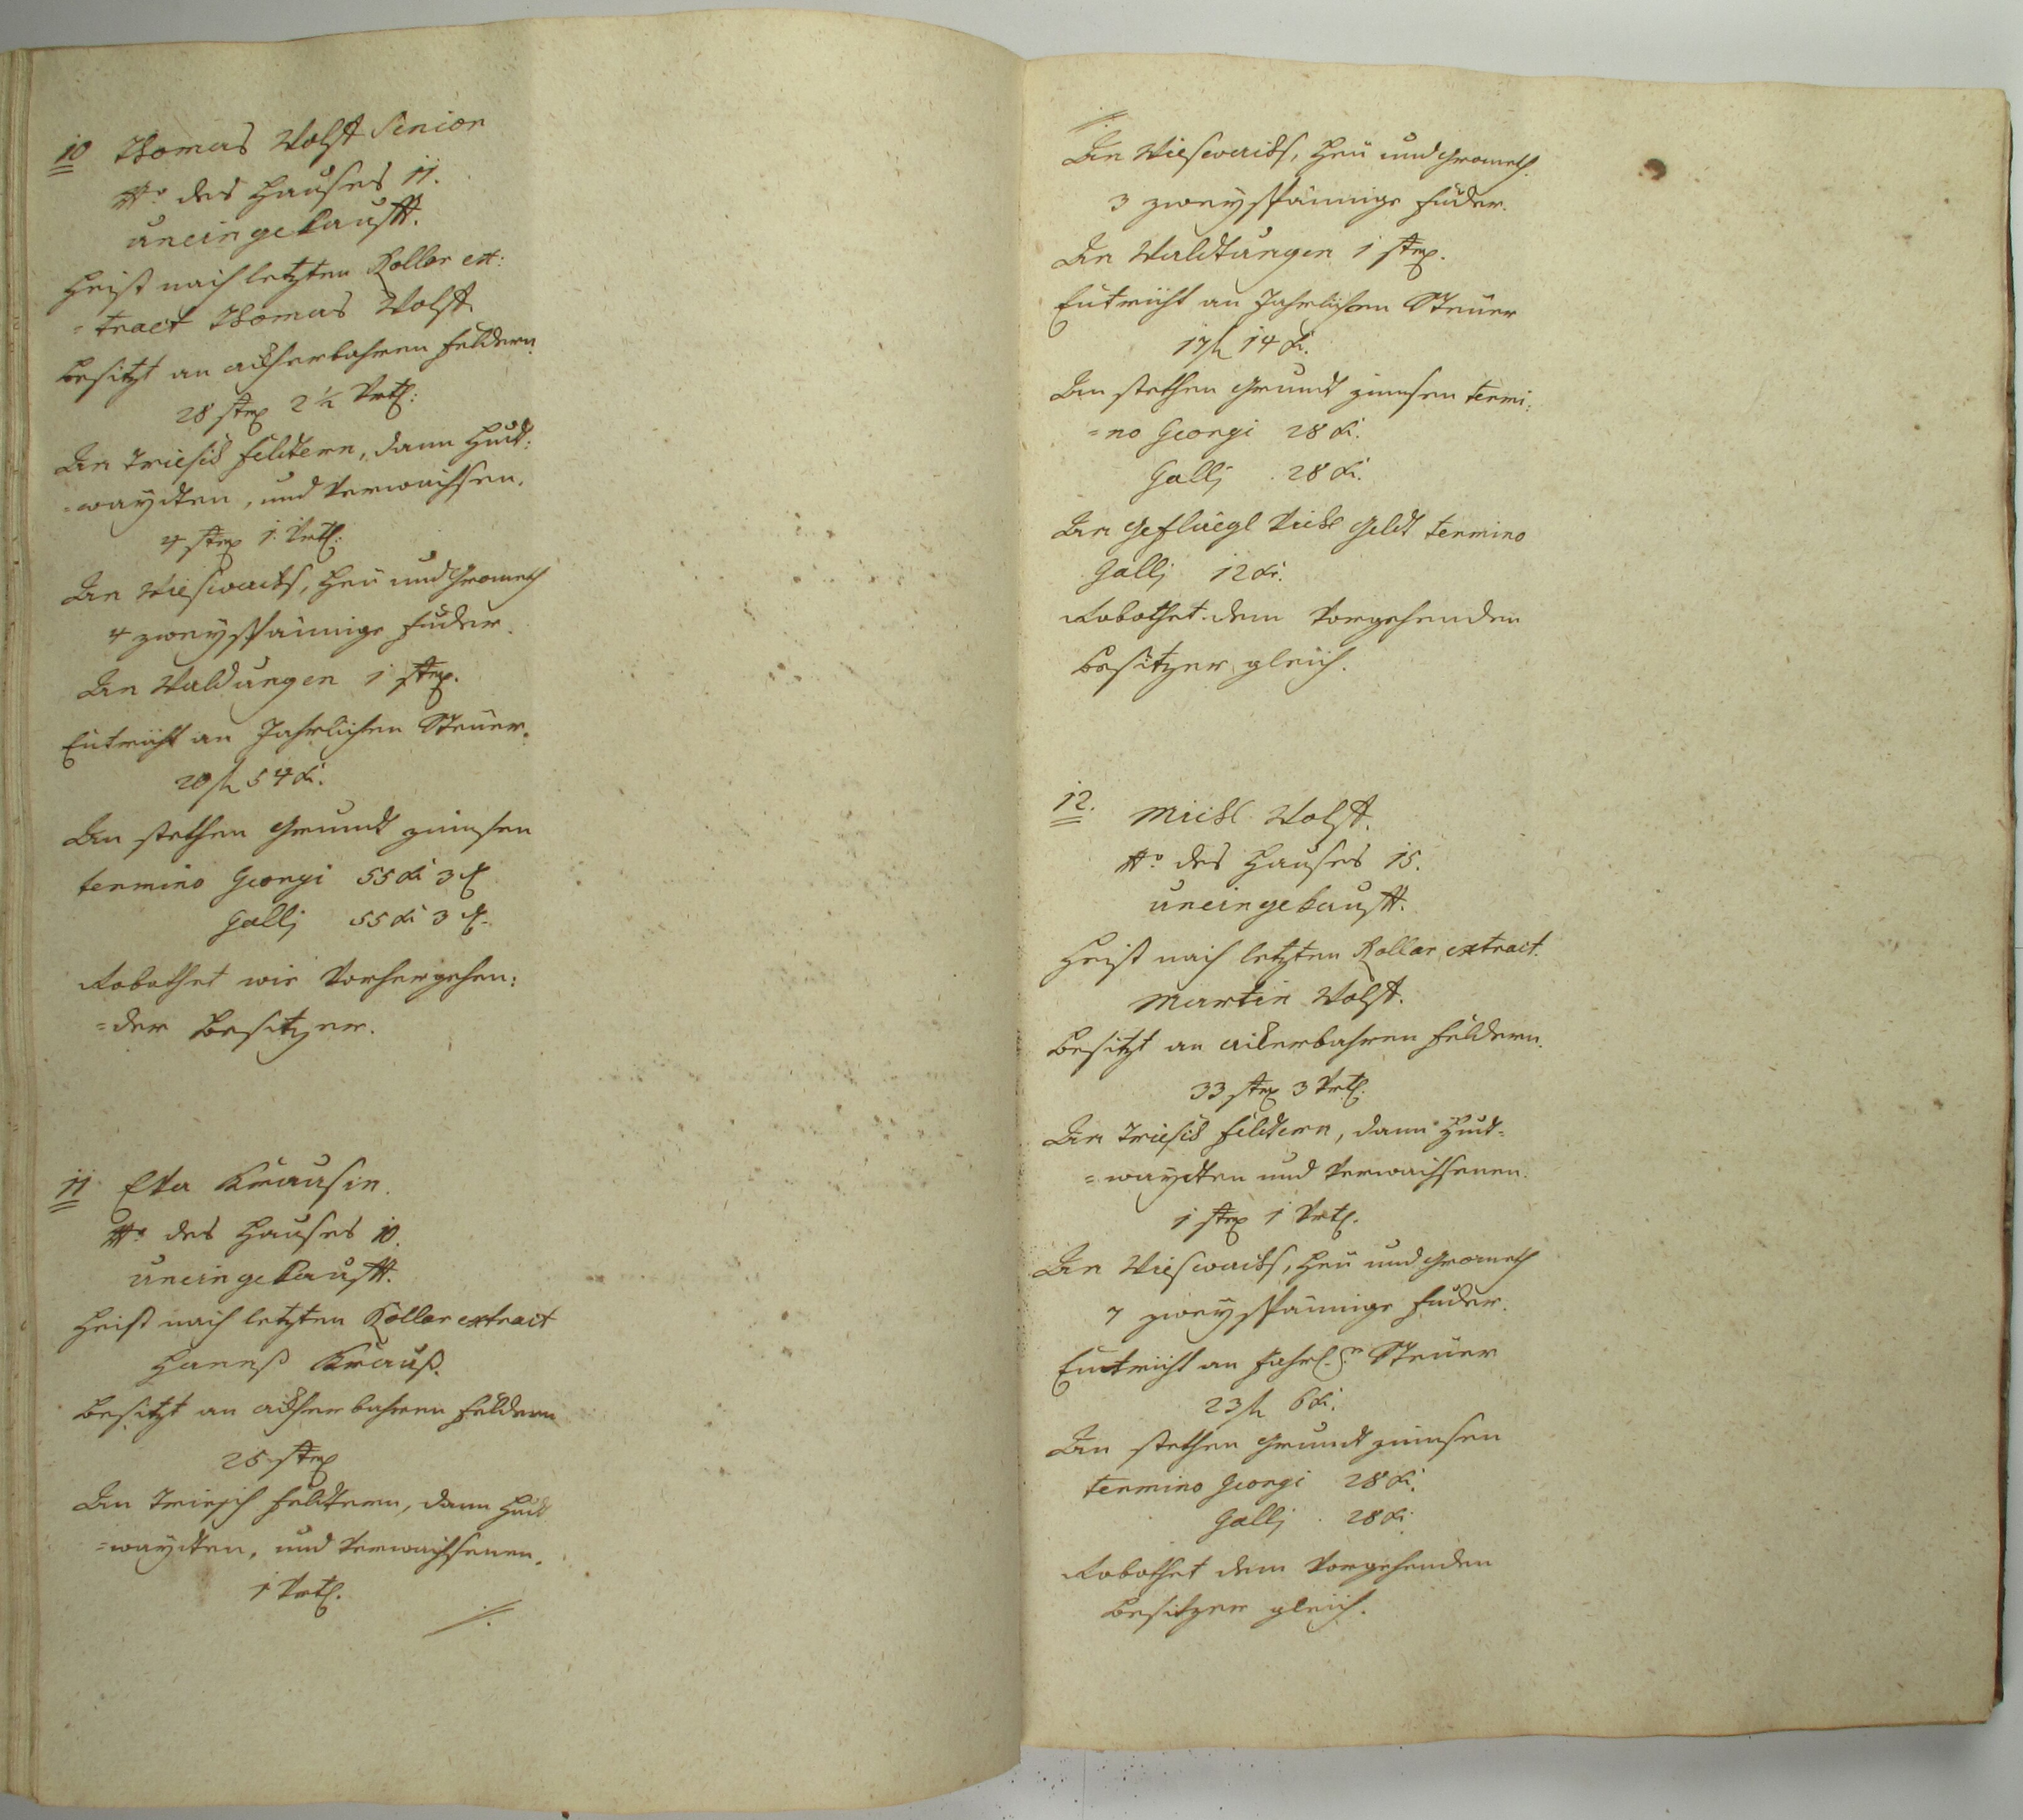 10 Thomas Wolf Senior
No. des Hauses 11.
uneingekaufft.
Heist nach letzten Rollar ex:
=tract Thomas Wolf
besitzt an ackherbahren Feldern.
28 str. 2 1/2 Vrtl:
An Triesch Feldtern, dann Hudt:
=wayden, und Verwachsen.
4 str. 1 Vrtl:
An Wieswachs, Heu und Grometh
4 zweyspännige Fuder.
An Waldungen 1 str.
Entricht an Jahrlichen Steuer.
20 fl 54 kr.
An stethen Grundt zinnsen
termino Georgi 55 kr 3 d
Gallj 55 kr 3 d.
Robothet wie Vorhergehen:
=der Besitzer.
11 Eva Krausin.
No. des Hauses 10.
uneingekaufft.
Heist nach letzten Rollar extract
Hannß Krauß.
besitzt an ackherbahren Feldern
25 str.
An Triesch Feldtern, dann Hudt
=wayden, und Verwachsenen.
1 Vrtl.
./.
./.
An Wieswachs, Heu und Grometh.
3 zweyspännige Fuder.
An Waldtungen 1 str.
Entricht an Jahrlichen Steuer
17 fl 14 kr.
An stethen Grundt zinnsen termi:
=no Georgi 28 kr.
Gallj 28 kr.
An Geflüegl Viech Geldt termino
Gallj 12 kr.
Robothet dem Vorgehenden
Besitzer gleich.
12. Michl Wolf.
No. des Hauses 15.
uneingekaufft.
Heist nach letzten Rollar extract.
Martin Wolf.
besitzt an ackerbahren Feldern.
33 str. 3 Vrtl.
An Triesch Feldtern, dann Hudt=
=wayden und Verwachsenen.
1 str. 1 Vrtl.
An Wieswachs, Heu und Grometh
7 zweyspännige Fuder.
Entricht an Jahrl.en Steuer
23 fl 6 kr.
An stethen Grundt zinnsen
termino Georgi 28 kr.
Gallj . 28 kr.
Robothet dem Vorgehenden
Besitzer gleich.